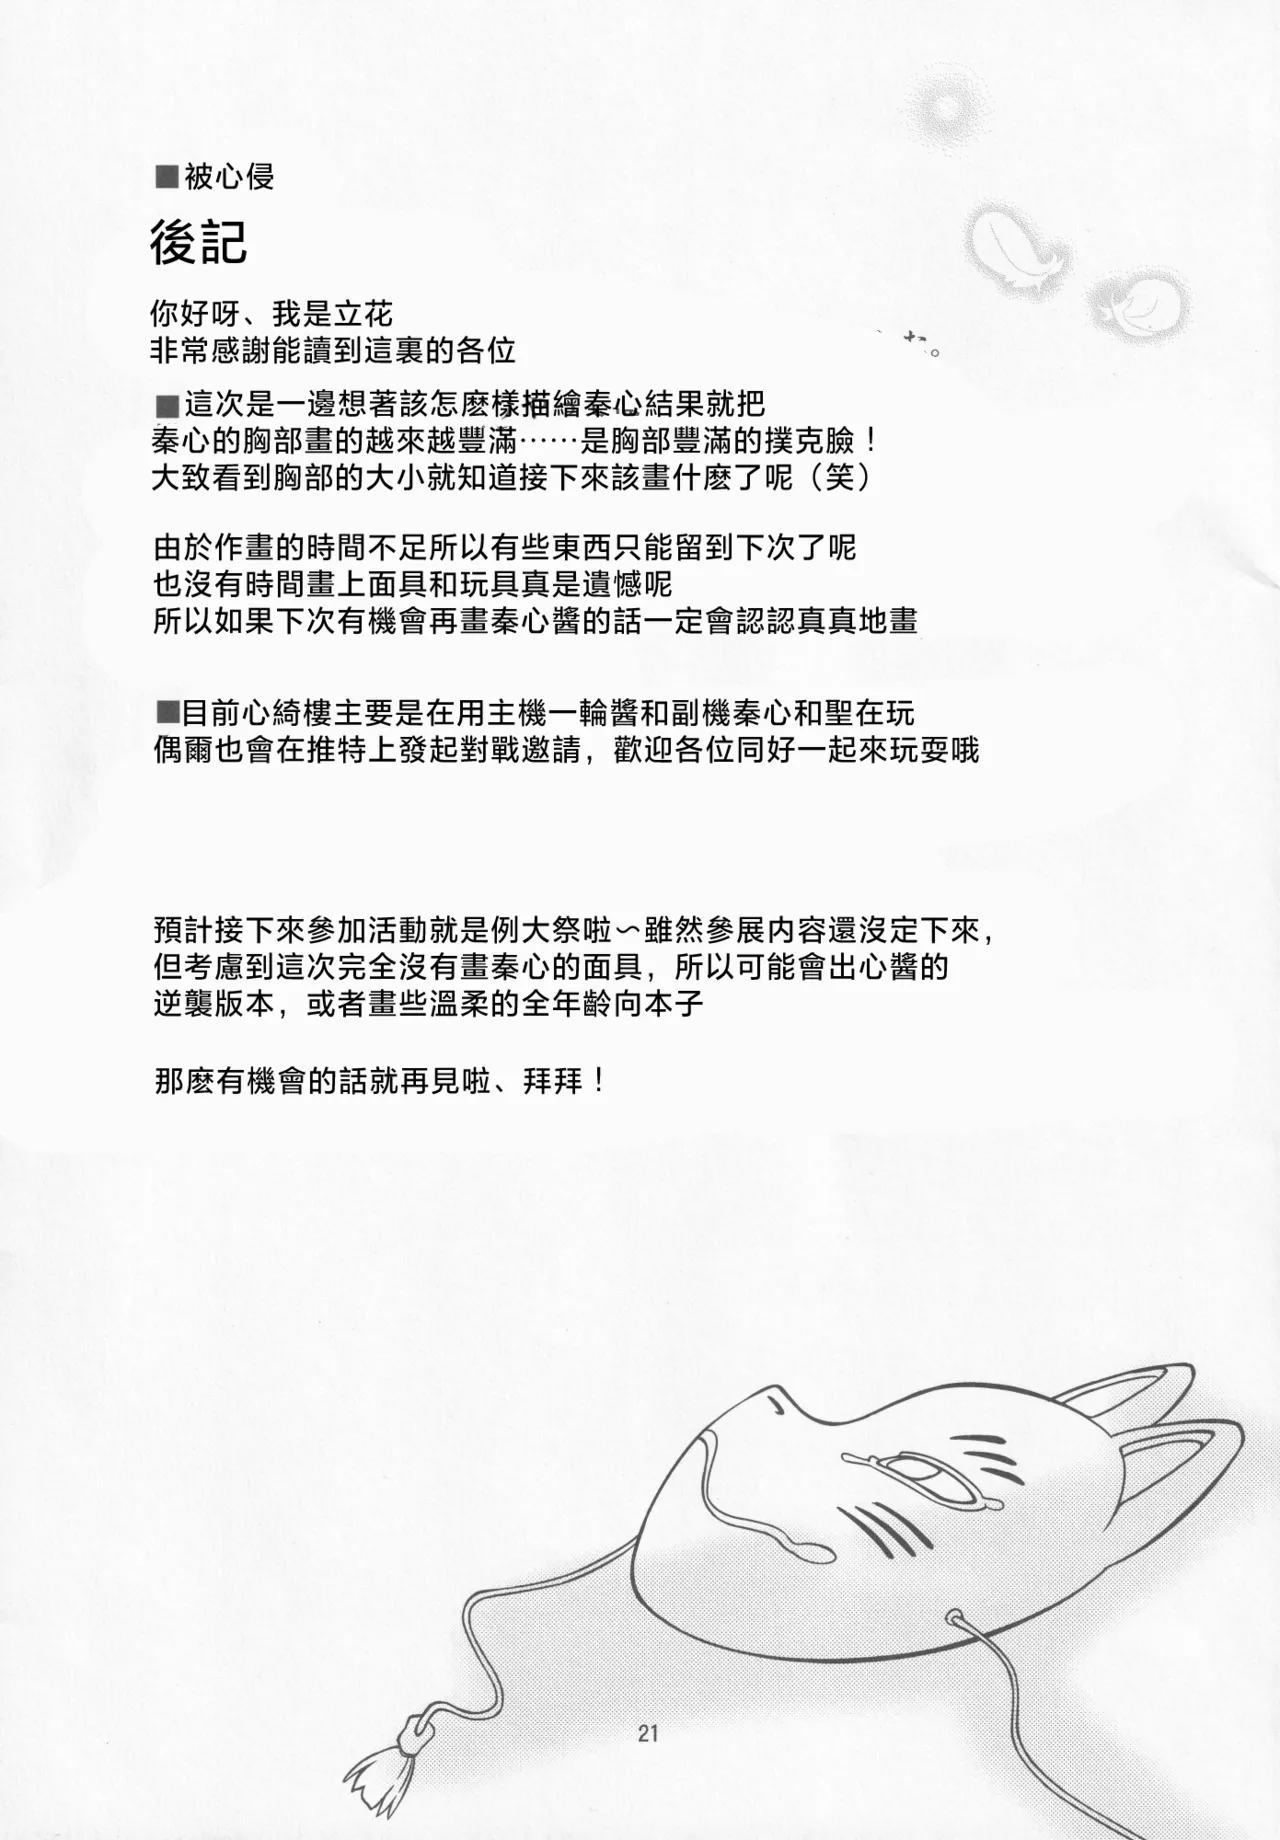 ■被心侵
後記
你好呀、我是立花
非常感謝能讀到這裏的各位
■這次是一邊想著該怎麽樣描繪秦心結果就把
秦心的胸部畫的越來越豐滿……是胸部豐滿的撲克臉！
大致看到胸部的大小就知道接下來該畫什麽了呢（笑）
由於作畫的時間不足所以有些東西只能留到下次了呢
也沒有時間畫上面具和玩具真是遺憾呢
所以如果下次有機會再畫秦心醬的話一定會認認真真地畫
■目前心綺樓主要是在用主機一輪醬和副機秦心和聖在玩
偶爾也會在推特上發起對戰邀請，歡迎各位同好一起來玩耍哦
預計接下來參加活動就是例大祭啦～雖然參展内容還沒定下來，
但考慮到這次完全沒有畫秦心的面具，所以可能會出心醬的
逆襲版本，或者畫些溫柔的全年齡向本子
那麽有機會的話就再見啦、拜拜！
21